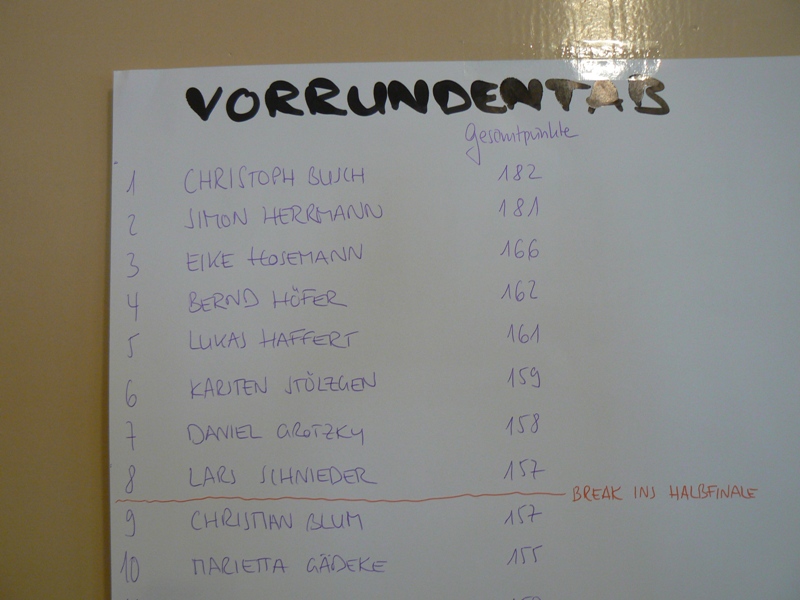 VORRUNDENTAB
Gesamtpunkte
1 CHRISTOPH BUSCH 182
2 SIMON HERRMANN 181
3 EIKE HOSEMANN 166
4 BERND HÖFER 162
5 LUKAS HAFFERT 161
6 KARSTEN STÖLZGEN 159
7 DANIEL GROTZKY 158
8 LARS SCHNIEDER 157
BREAK INS HALBFINALE
9 CHRISTIAN BLUM 157
10 MARIETTA GÄDEKE 155